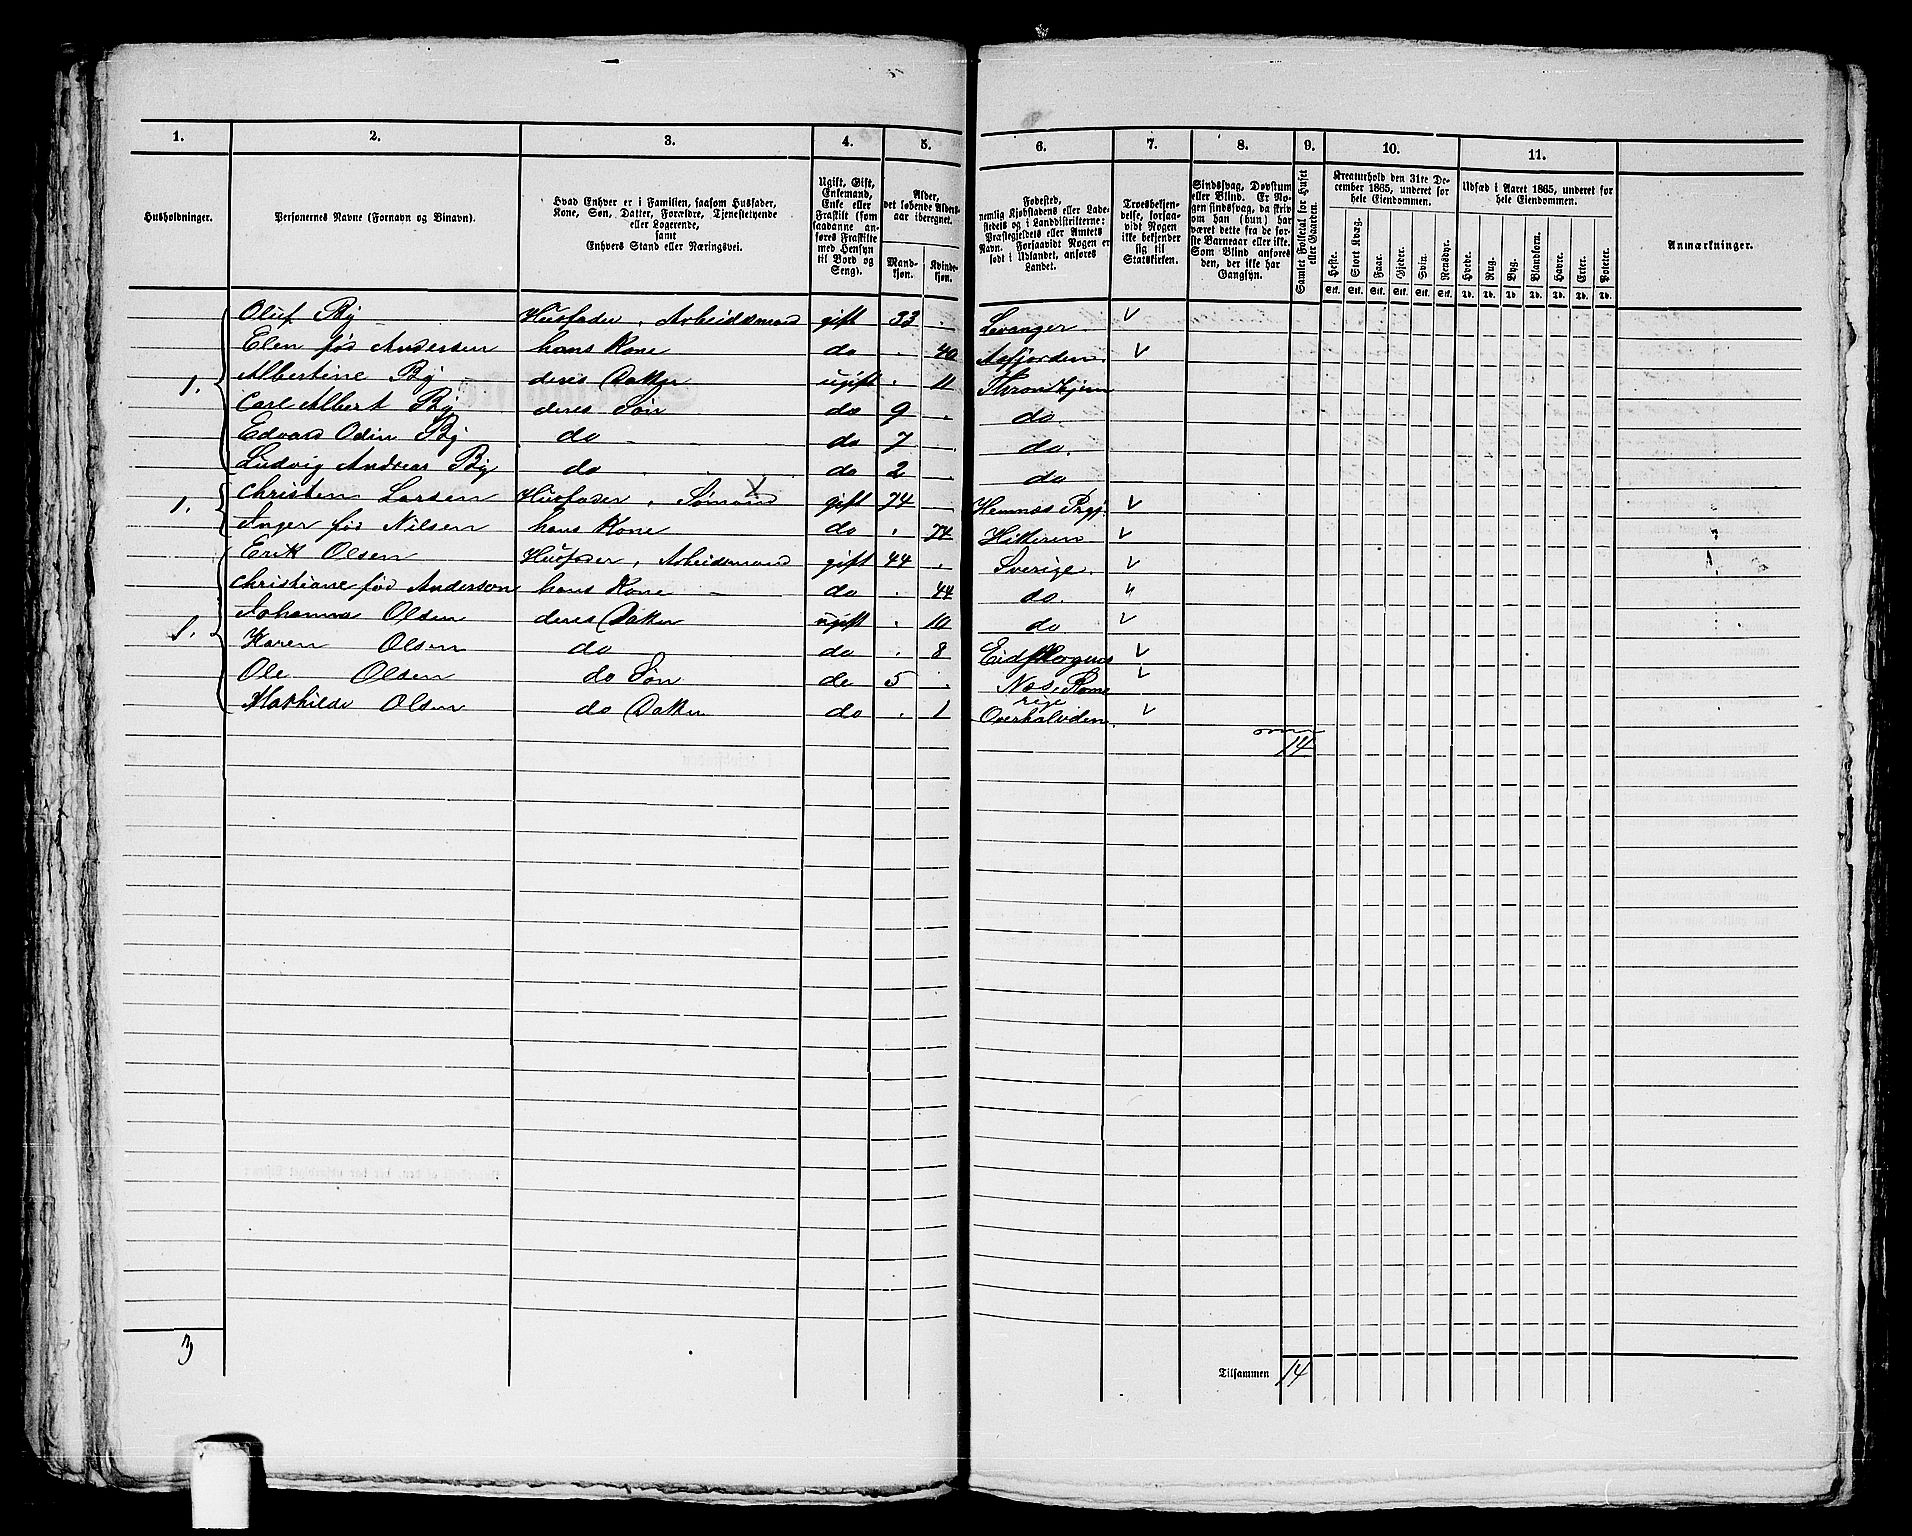 1. 2. 3. 4. 5. 6. 7. 8. 9. 10. 11.
Husholdninger.
Personernes Navne (Fornavn og Binavn).
Hvad Enhver er i Familien, saasom Husfader,
Kone, Søn, Datter, Forældre, Tjenestetyende
eller Logerende,
samt
Enhvers Stand eller Næringsvei.
Ugift, Gift,
Enkemand,
Enke eller
Fraskilt (som
saadanne an-
føres Fraskilte
med Hensyn
til Bord og
Seng).
Alder,
det løbende Alders-
aar iberegnet.
Mand-
kjøn.
Kvinde-
kjøn.
Fødested,
nemlig Kjøbstadens eller Lade-
stedets og i Landdistrikterne:
Præstegjeldets eller Amtets
Navn. Forsaavidt Nogen er
født i Udlandet, anføres
Landet.
Troesbekjen-
delse, forsaa-
vidt Nogen
ikke bekjender
sig til
Statskirken.
Sindssvag, Døvstum
eller Blind. Er No-
gen sindssvag, da skriv
om han (hun) har
været dette fra de før-
ste Barneaar eller ikke.
Som Blind anføres
den, der ikke har
Gangsyn.
Samlet Folketal for Huset
eller Gaarden.
Kreaturhold den 31te De-
cember 1865, underet for
hele Eiendommen.
Heste. Stort Kvæg. Faar. Gjeder. Svin. Rensdyr.
Stk. Stk. Stk. Stk. Stk. Stk.
Udsæd i Aaret 1865, underet for
hele Eiendommen.
Hvede. Rug. Byg. Blandkorn. Havre. Erter. Poteter.
Td. Td. Td. Td. Td. Td. Td.
Anmærkninger.
Oluf By Husfader, Arbeidsmand gift 33 . Levanger v
Elen fød Andersen hans Kone do . 40 Aafjorden v
1. Albertine By deres Datter ugift . 11 Throndhjem
Carl Albert By deres Søn do 9 . do.
Edvard Odin By do - do 7 do.
Ludvig Andreas By do . do 2 . do
1. Christen Larsen Husfader, Sømand gift 74 . Hemnæs Prgj. v
Inger fød Nilsen hans Kone do . 74 Hitteren v
Erik Olsen Husfader, Arbeidsmand gift 44 . Sverige. v
Christiane fød Anderson hans Kone do . 44 do. "
1. Johanna Olsen deres Datter ugift . 10 do v
Karen Olsen do do . 8 v
Ole Olsen do Søn do 5 . Næs, Rome v
rige
Mathilde Olsen do Datter do . 1 Overhalvden v
14
3
Tilsammen 14